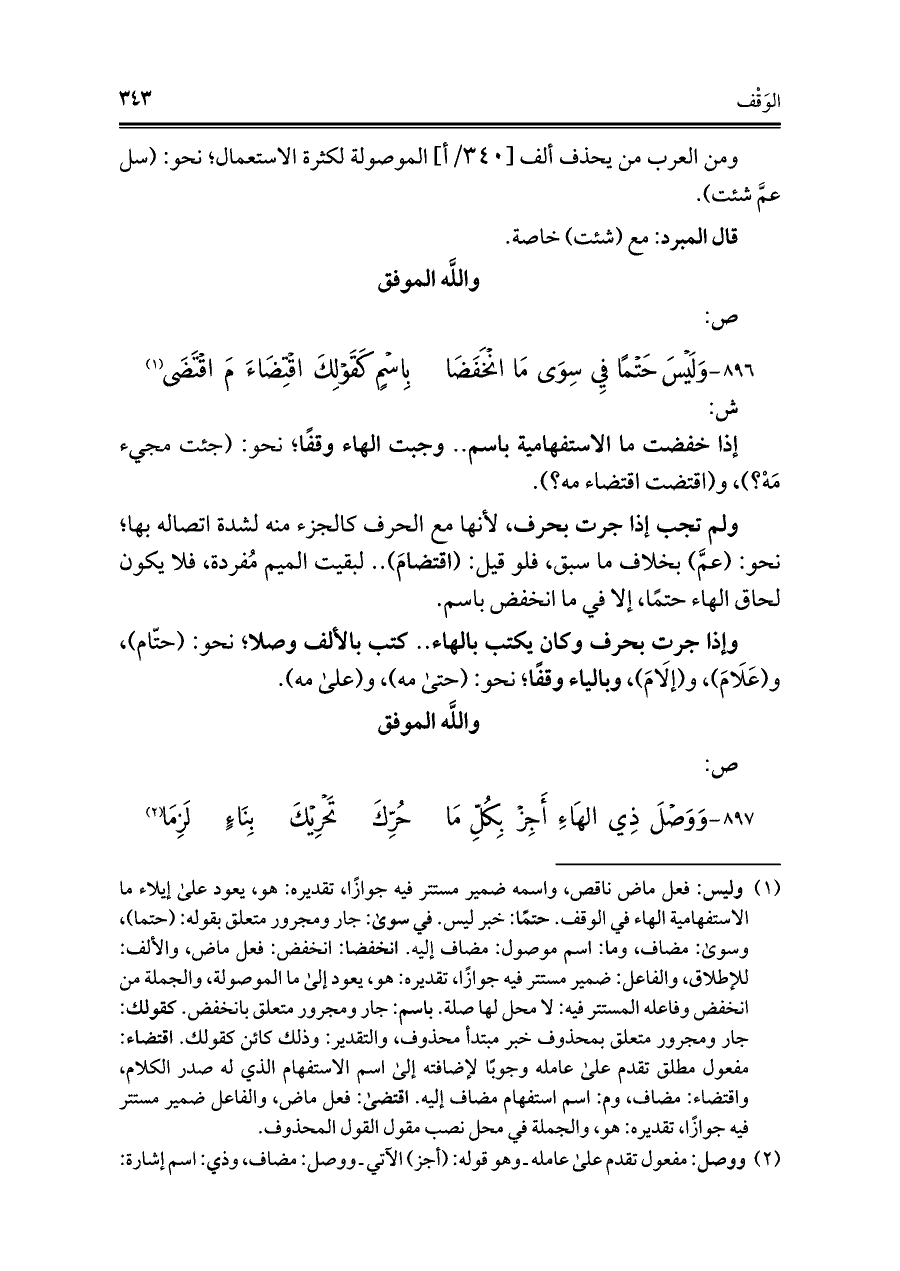 الوَقْف ٣٤٣
ومن العرب من يحذف ألف [٣٤٠/ أ] الموصولة لكثرة الاستعمال؛ نحو: (سل
عمَّ شئت).
قال المبرد: مع (شئت) خاصة.
واللَّه الموفق
ص:
٨٩٦-وَلَيْسَ حَتْمًا فِي سِوَى مَا انْخَفَضَا بِاسْمٍ كَقَوْلِكَ اقْتِضَاءَ مَ اقْتَضَى(١)
ش:
إذا خفضت ما الاستفهامية باسم.. وجبت الهاء وقفًا؛ نحو: (جئت مجيء
مَهْ؟)، و(اقتضت اقتضاء مه؟).
ولم تجب إذا جرت بحرف، لأنها مع الحرف كالجزء منه لشدة اتصاله بها؛
نحو: (عمَّ) بخلاف ما سبق، فلو قيل: (اقتضامَ).. لبقيت الميم مُفردة، فلا يكون
لحاق الهاء حتمًا، إلا في ما انخفض باسم.
وإذا جرت بحرف وكان يكتب بالهاء.. كتب بالألف وصلا؛ نحو: (حتّام)،
و(عَلَامَ)، و(إلَامَ)، وبالياء وقفًا؛ نحو: (حتىٰ مه)، و(علىٰ مه).
واللَّه الموفق
ص:
٨٩٧-وَوَصْلَ ذِي الهَاءِ أَجِزْ بِكُلِّ مَا حُرِّكَ تَحْرِيْكَ بِنَاءٍ لَزِمَا(٢)
(١) وليس: فعل ماض ناقص، واسمه ضمير مستتر فيه جوازًا، تقديره: هو، يعود علىٰ إيلاء ما
الاستفهامية الهاء في الوقف. حتمًا: خبر ليس. في سوىٰ: جار ومجرور متعلق بقوله: (حتما)،
وسوىٰ: مضاف، وما: اسم موصول: مضاف إليه. انخفضا: انخفض: فعل ماض، والألف:
للإطلاق، والفاعل: ضمير مستتر فيه جوازًا، تقديره: هو، يعود إلىٰ ما الموصولة، والجملة من
انخفض وفاعله المستتر فيه: لا محل لها صلة. باسم: جار ومجرور متعلق بانخفض. كقولك:
جار ومجرور متعلق بمحذوف خبر مبتدأ محذوف، والتقدير: وذلك كائن كقولك. اقتضاء:
مفعول مطلق تقدم علىٰ عامله وجوبًا لإضافته إلىٰ اسم الاستفهام الذي له صدر الكلام،
واقتضاء: مضاف، وم: اسم استفهام مضاف إليه. اقتضىٰ: فعل ماض، والفاعل ضمير مستتر
فيه جوازًا، تقديره: هو، والجملة في محل نصب مقول القول المحذوف.
(٢) ووصل: مفعول تقدم علىٰ عامله ـ وهو قوله: (أجز) الآتي ـ ووصل: مضاف، وذي: اسم إشارة: